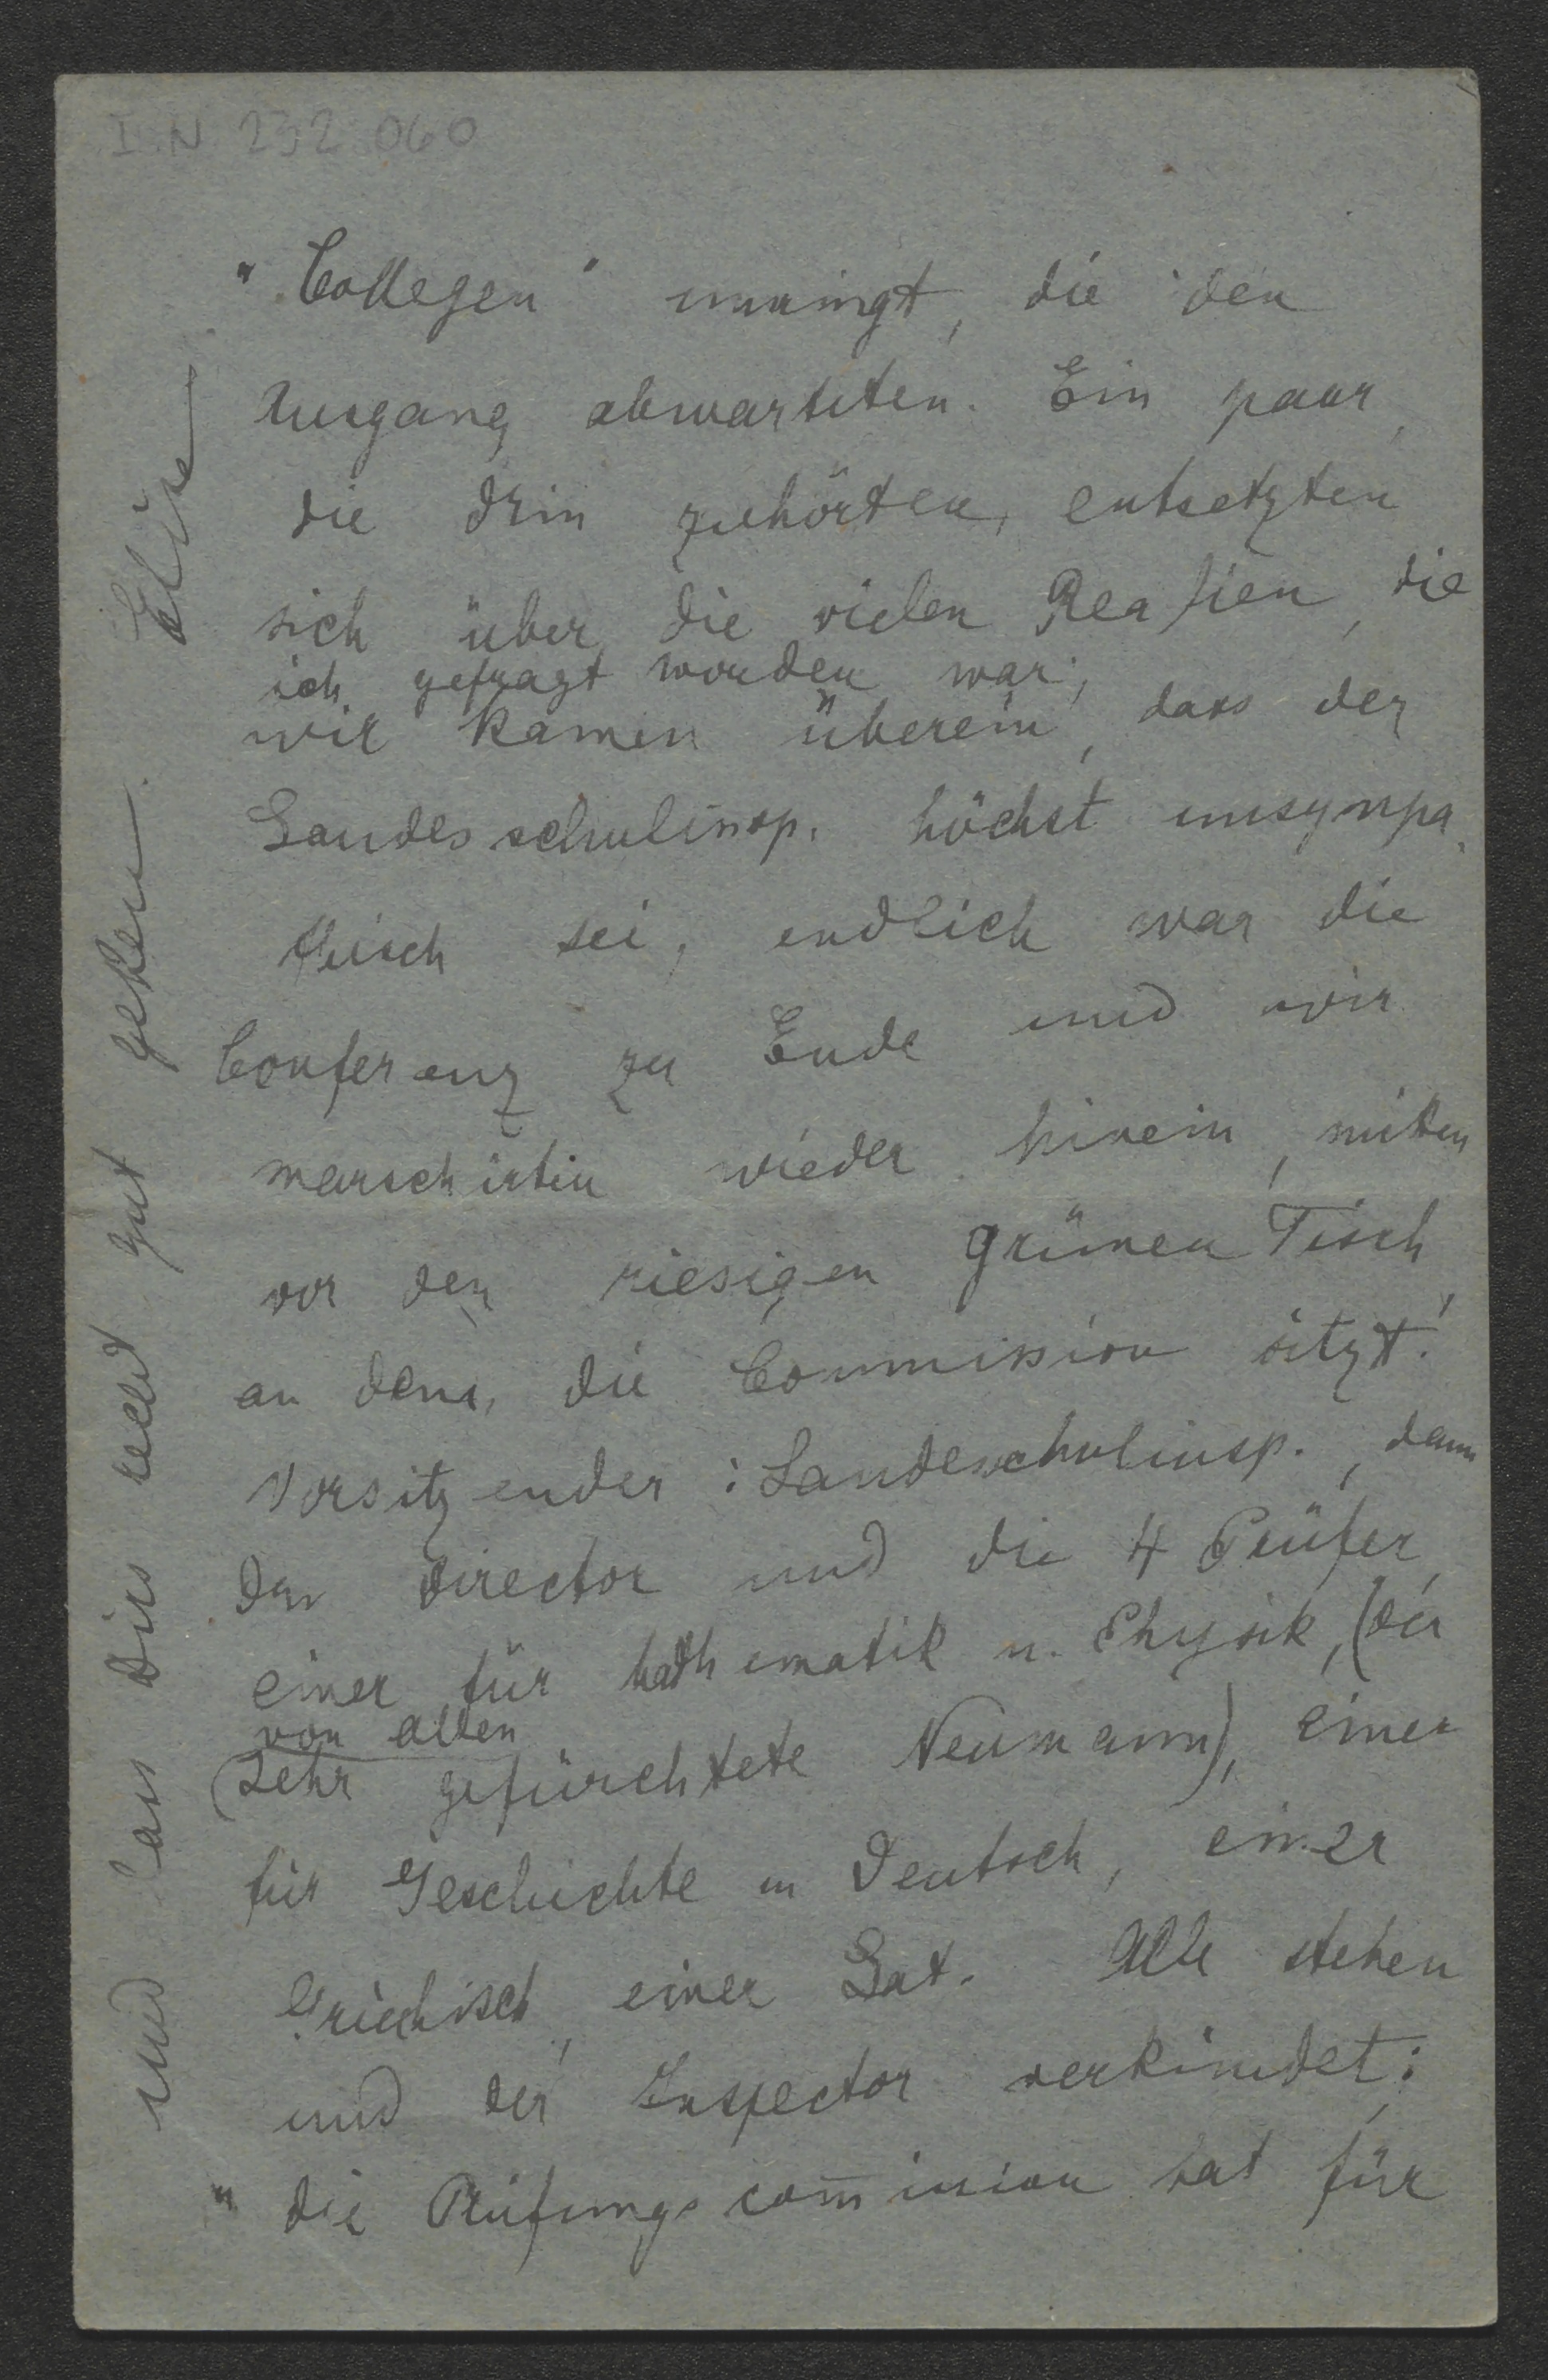 I.N. 232.060
"Collegen" umringt, die den
Ausgang abwarteten. Ein paar,
die drin zuhörten, entsetzten
sich über die vielen Realien, die
ich gefragt worden war;
wir kamen überein, dass der
Landesschulinsp. höchst unsympa
thisch sei, endlich war die
Conferenz zu Ende und wir
marschirten wieder hinein, mitten
vor den riesigen grünen Tisch,
an dem, die Commission sitzt!
Vorsitzender: Landesschulinsp., dann
der Director und die 4 Prüfer,
einer für Mathematik u. Physik, (der
von allen
sehr gefürchtete Neumann), einer
für Geschichte u Deutsch, einer
Griechisch, einer Lat. Alle stehen
und der Inspector verkündet:
"die Prüfungscom̄ission hat für
und lass Dirs recht gut gehen. Elise